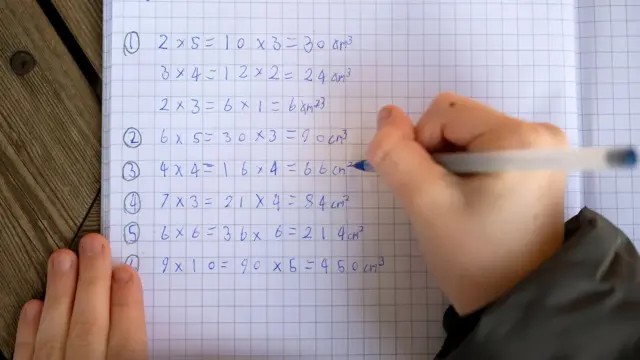 ① 2 × 5 = 10 × 3 = 30 cm³
3 × 4 = 12 × 2 = 24 cm³
2 × 3 = 6 × 1 = 6 cm³
② 6 × 5 = 30 × 3 = 90 cm³
③ 4 × 4 = 16 × 4 = 66 cm³
④ 7 × 3 = 21 × 4 = 84 cm³
⑤ 6 × 6 = 36 × 6 = 214 cm³
9 × 10 = 90 × 5 = 450 cm³